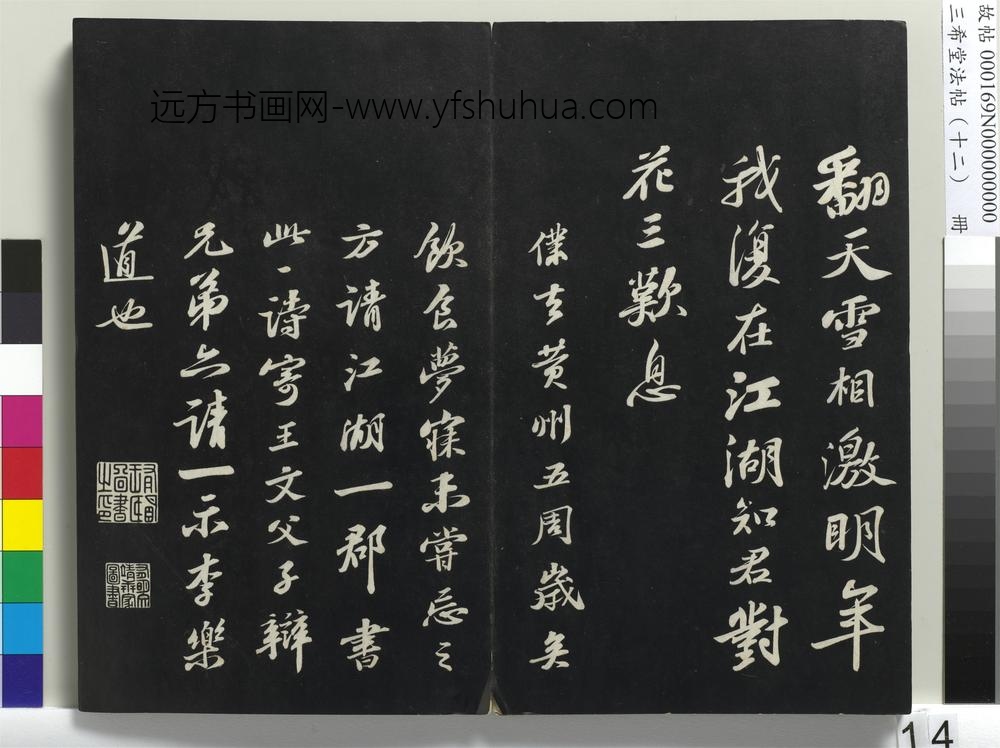 远方书画网-www.yfshuhua.com
故帖 000169N000000000
三希堂法帖（十二） 冊
翻天雪相激明年
我復在江湖知君對
花三歎息
僕去黄州五周歲矣
飲食夢寐未嘗忘之
方請江湖一郡書
此一詩寄王文父子辯
兄弟亦請一示李樂
道也
14